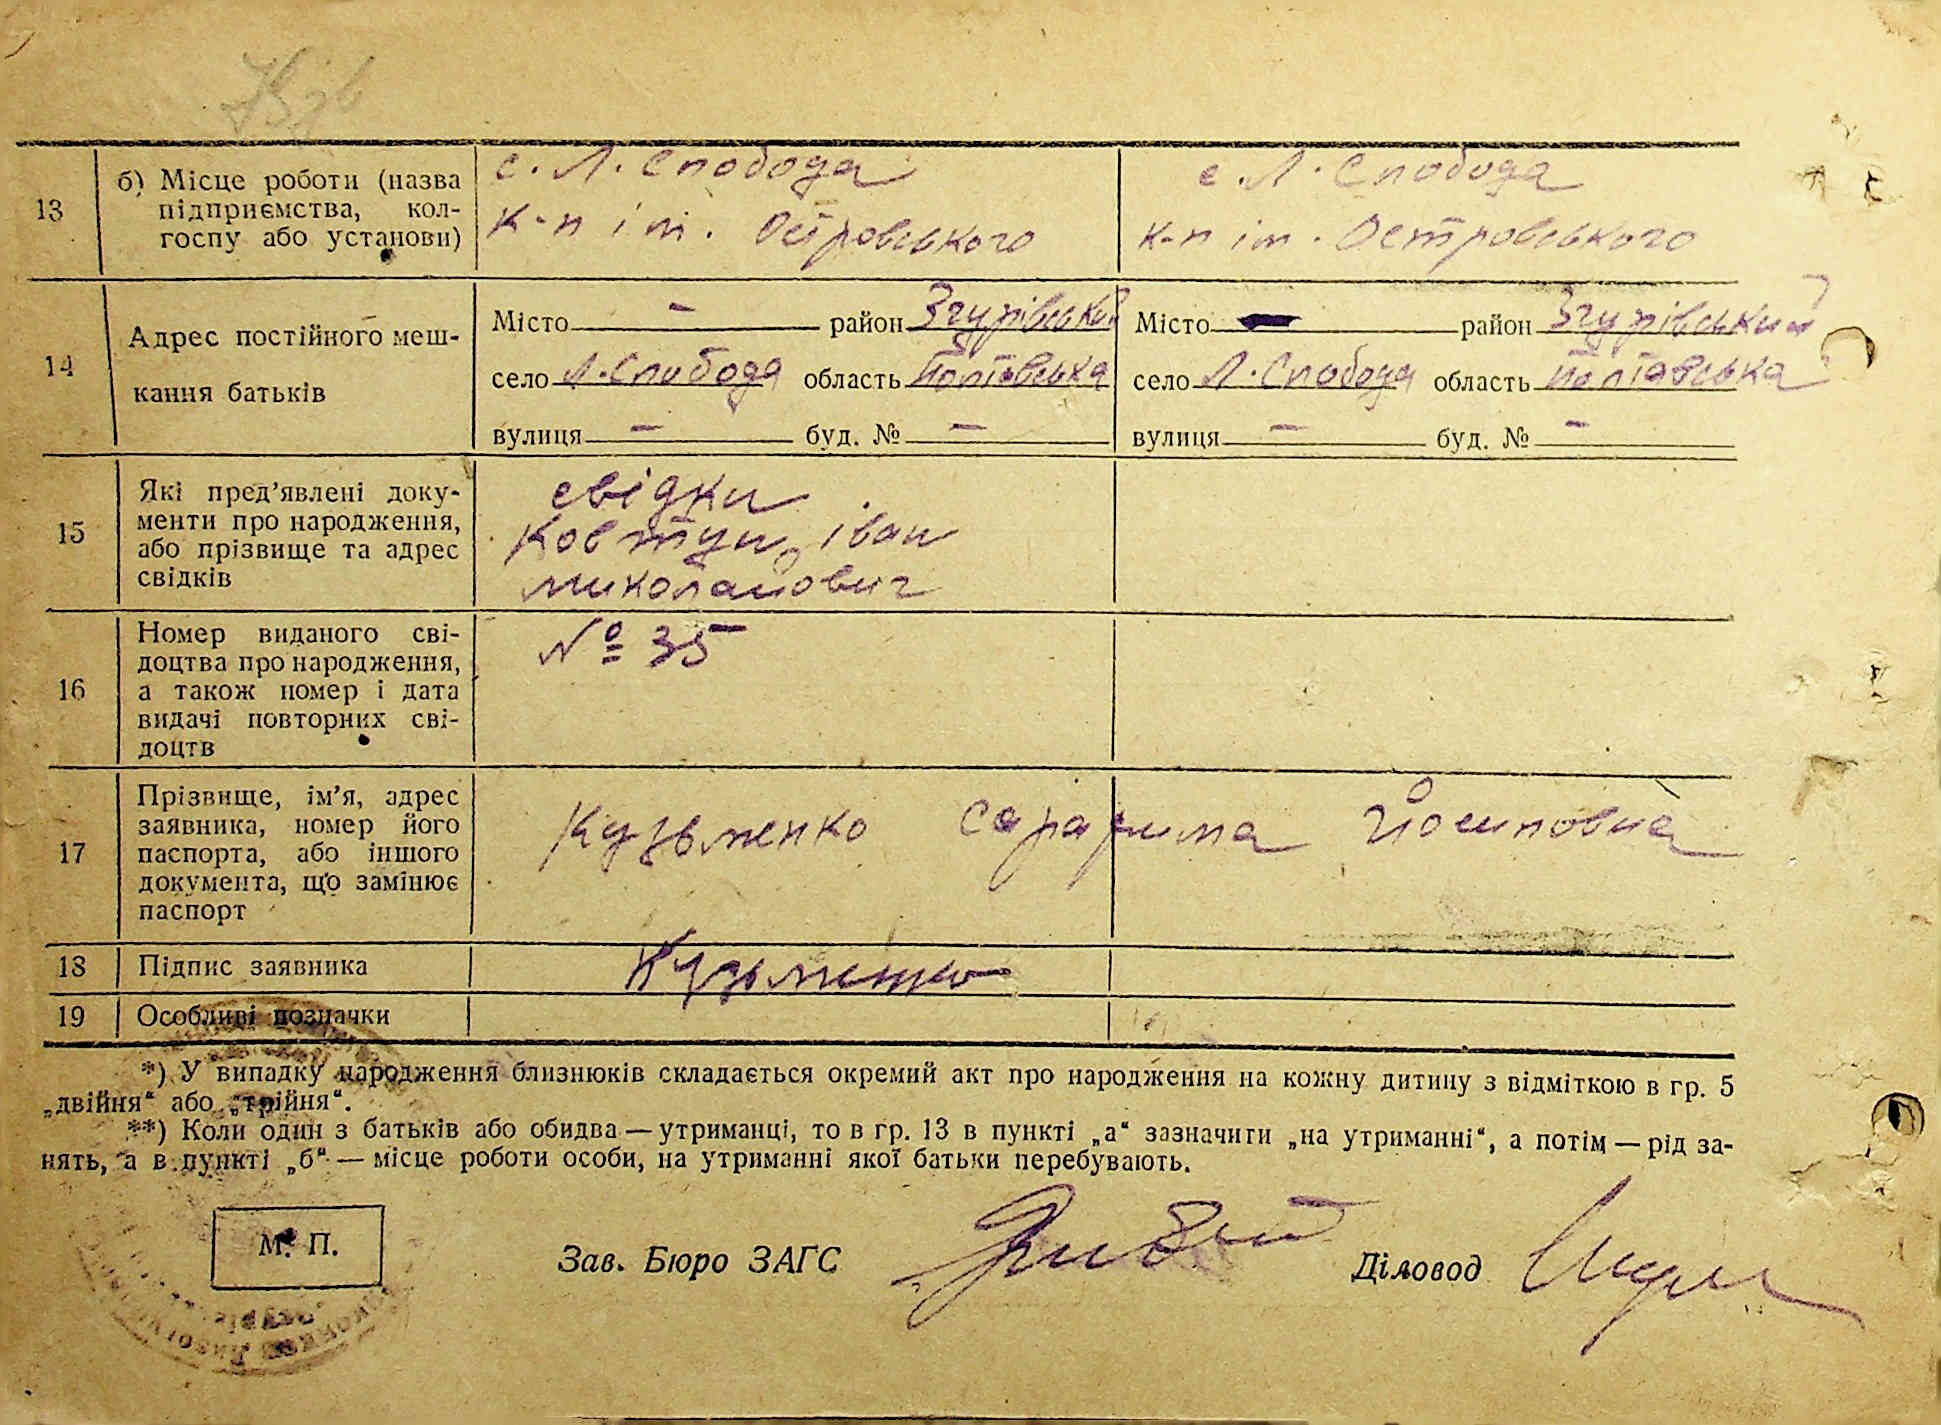 13
б) Місце роботи (назва
підприємства, кол-
госпу або установи)
с. Л. Слобода
к-п ім. Островського
с. Л. Слобода
к-п ім. Островського
14
Адрес постійного меш-
кання батьків
Місто — район Згурівський
село Л. Слобода область Полтавська
вулиця — буд. № —
Місто — район Згурівський
село Л. Слобода область Полтавська
вулиця — буд. № —
15
Які пред'явлені доку-
менти про народження,
або прізвище та адрес
свідків
свідки
Ковтун Іван
Миколайович
16
Номер виданого сві-
доцтва про народження,
а також номер і дата
видачі повторних сві-
доцтв
№ 35
17
Прізвище, ім'я, адрес
заявника, номер його
паспорта, або іншого
документа, що замінює
паспорт
Кузьменко Сарафима Йосиповна
18 Підпис заявника
Кузьменко
19 Особливі позначки
*) У випадку народження близнюків складається окремий акт про народження на кожну дитину з відміткою в гр. 5
„двійня“ або „трійня“.
**) Коли один з батьків або обидва — утриманці, то в гр. 13 в пункті „а“ зазначити „на утриманні“, а потім — рід за-
нять, а в пункті „б“ — місце роботи особи, на утриманні якої батьки перебувають.
М. П.
Зав. Бюро ЗАГС
Діловод